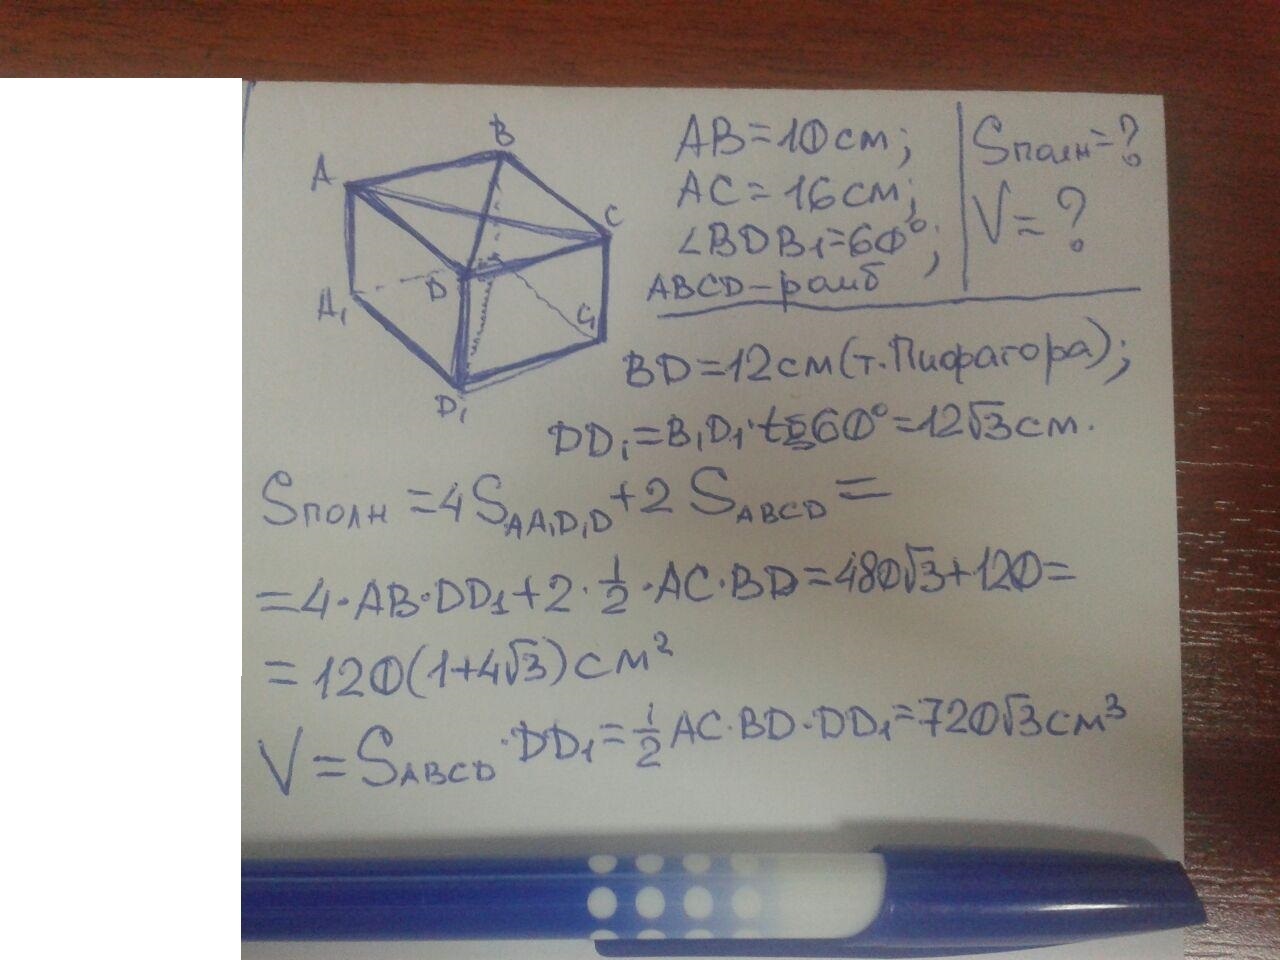 B
A
C
D
A₁
C₁
D₁
AB=10см;
AC=16см;
∠BDB₁=60°;
ABCD-ромб
Sполн=?
V=?
BD=12см(т.Пифагора);
DD₁=B₁D₁·tg60°=12√3см.
Sполн=4S_AA₁D₁D+2S_ABCD=
=4·AB·DD₁+2·½·AC·BD=480√3+120=
=120(1+4√3)см²
V=S_ABCD·DD₁=½AC·BD·DD₁=720√3см³